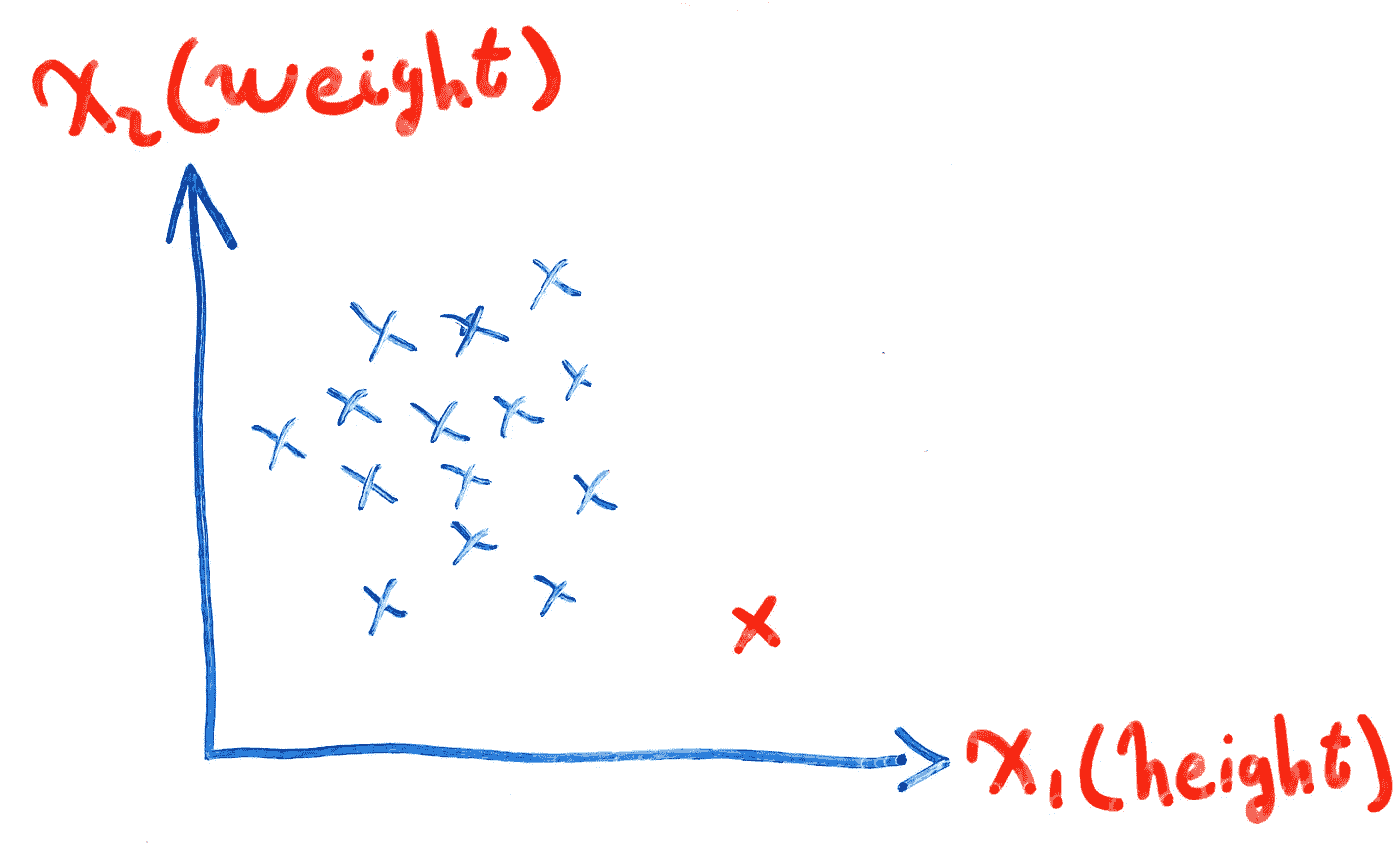 x₂ (weight)
x₁ (height)